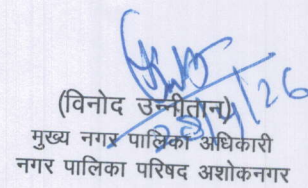 (विनोद उन्नीतान)
मुख्य नगर पालिका अधिकारी
नगर पालिका परिषद अशोकनगर